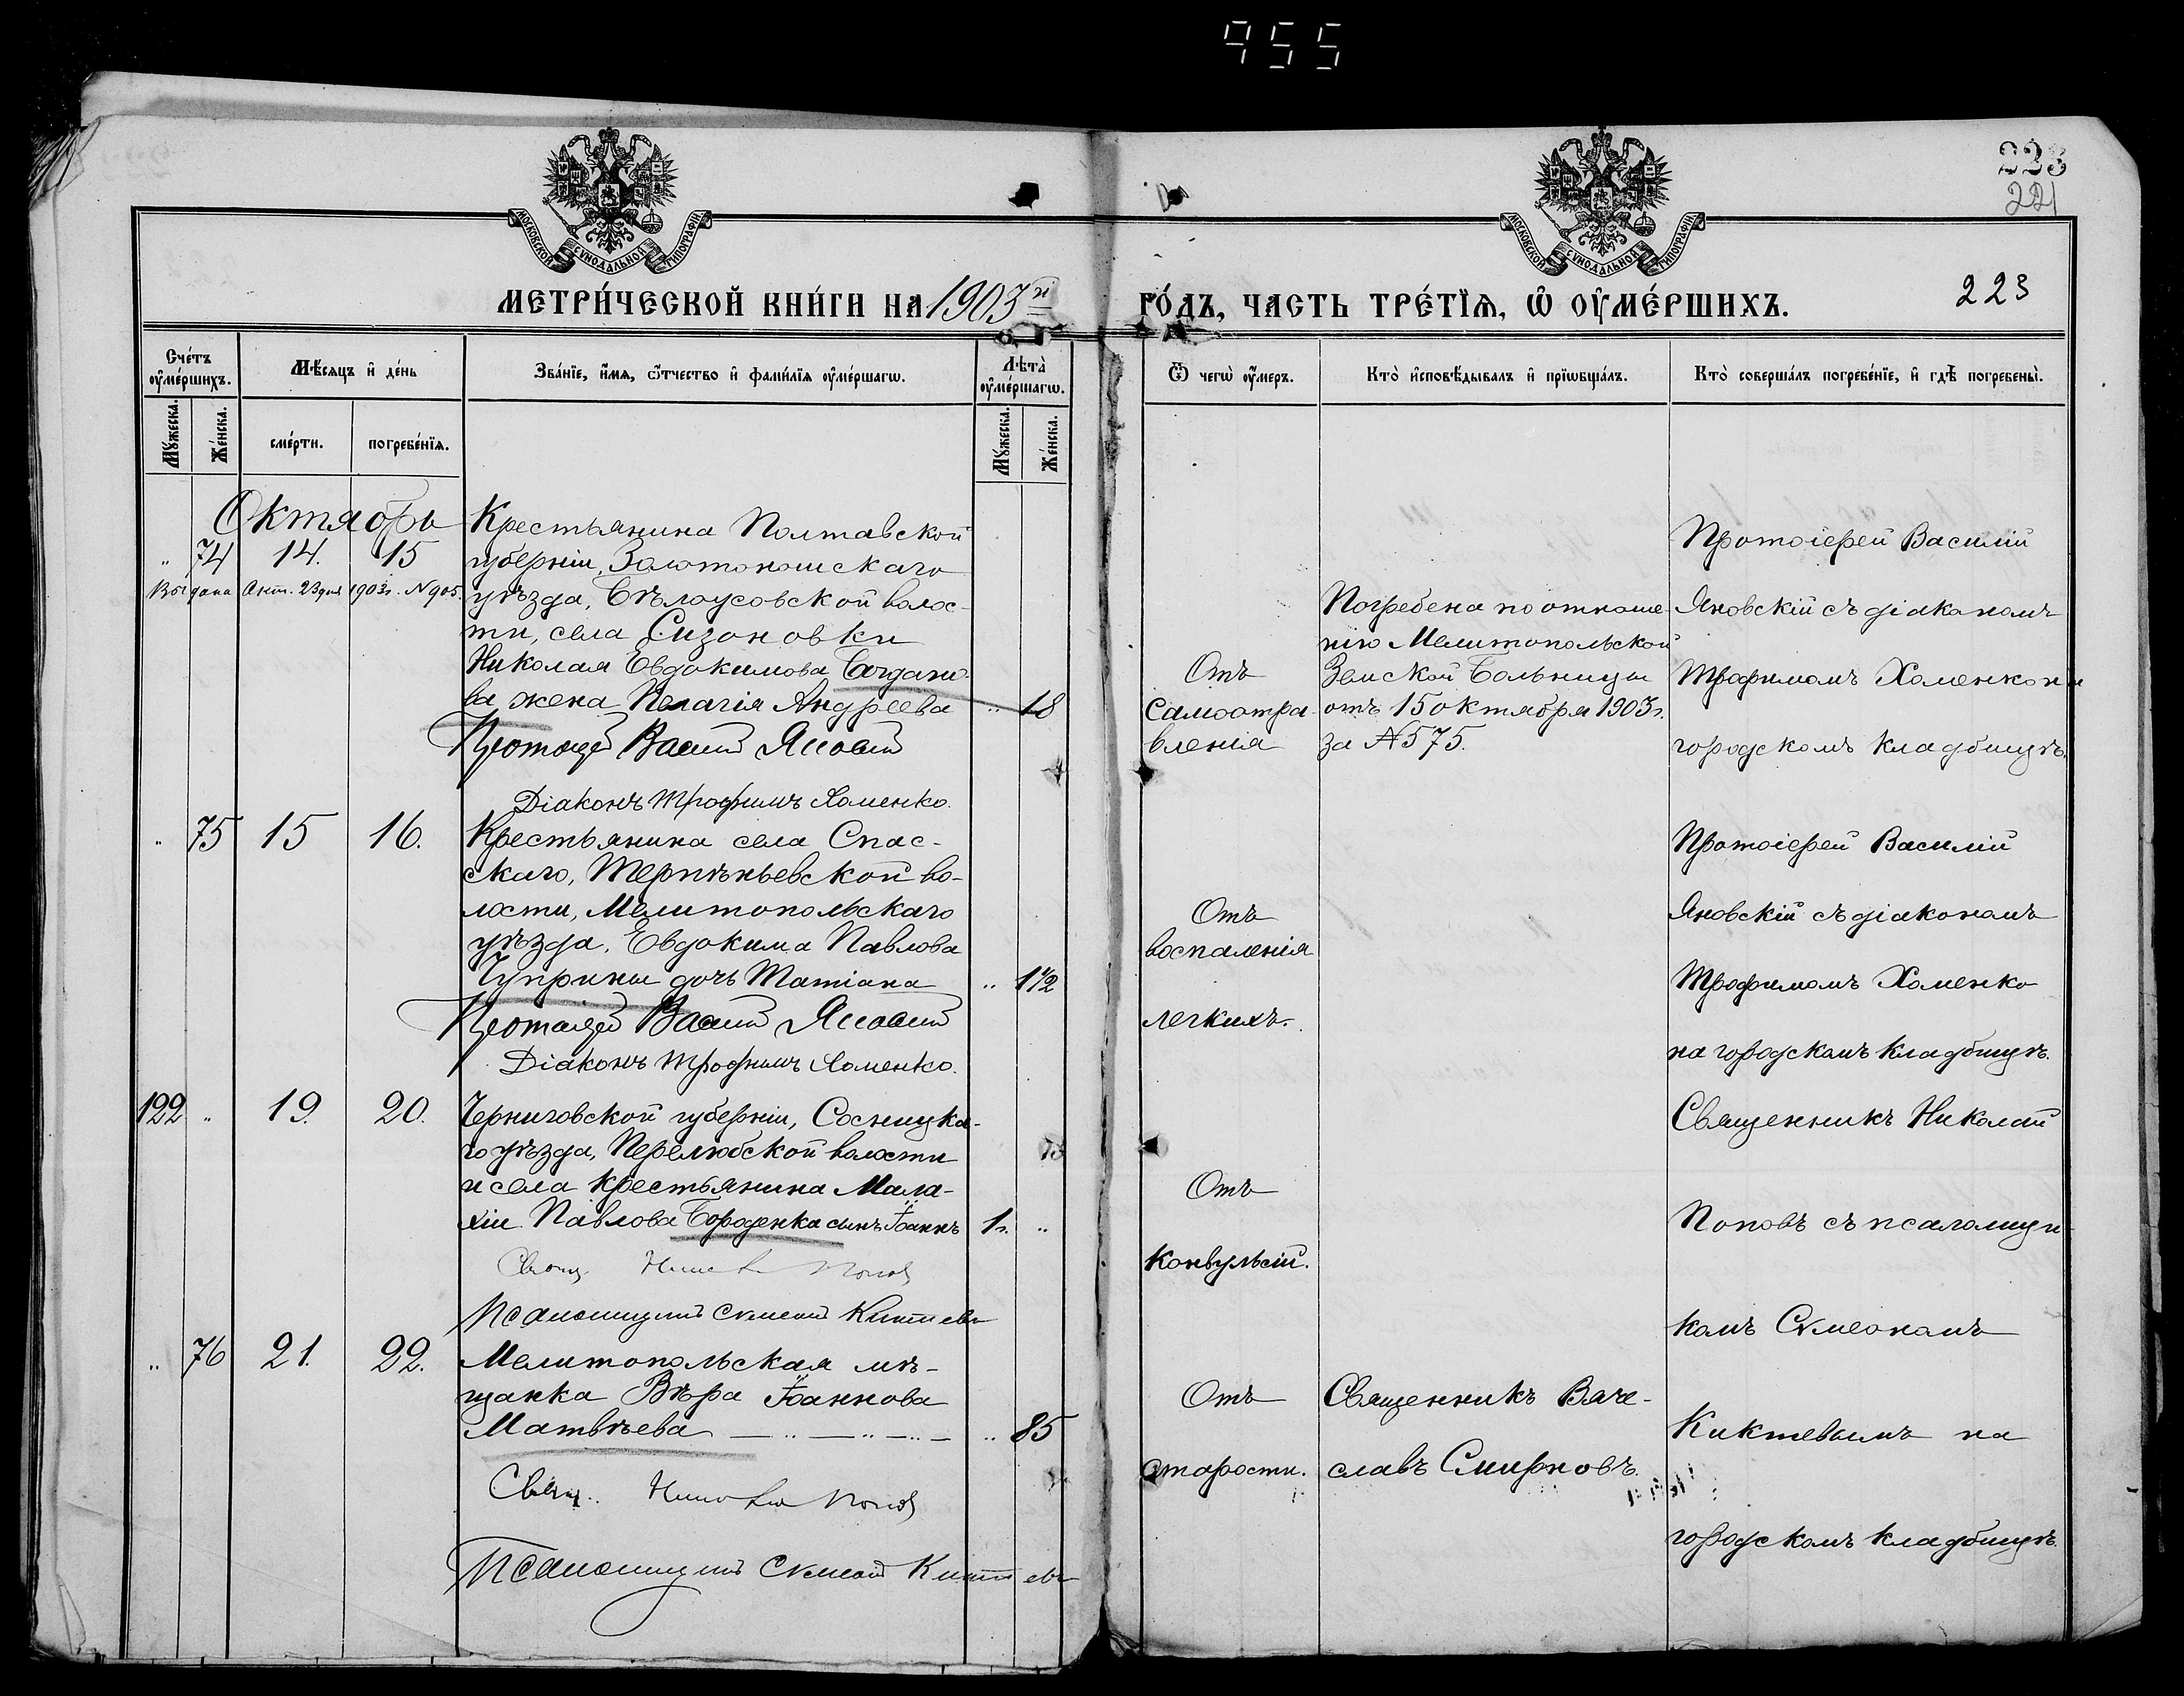 955
223
221
МОСКОВСКОЙ СѴНОДАЛЬНОЙ ТИПОГРАФІИ
МОСКОВСКОЙ СѴНОДАЛЬНОЙ ТИПОГРАФІИ
МЕТРИ́ЧЕСКОЙ КНИ́ГИ НА 1903й ГО́ДЪ, ЧАСТЬ ТРЕ́ТЇѦ, Ѡ ОУ҆МЕ́РШИХЪ.
223
Сче́тъ оу҆ме́ршихъ.
Мѣ́сяцъ и҆ де́нь
Зва́нїе, и҆́мя, ѻ҆́тчество и҆ фами́лїя оу҆ме́ршагѡ.
Лѣта̀ оу҆ме́ршагѡ.
Ѿ чегѡ̀ оу҆́меръ.
Кто̀ и҆сповѣ́дывалъ и҆ прїѡбща́лъ.
Кто̀ соверша́лъ погребе́нїе, и҆ гдѣ̀ погребены̀.
Му́жеска.
Же́нска.
сме́рти.
погребе́нїя.
Му́жеска.
Же́нска.
Октябрь
„ 74 14. 15
Выдана Окт. 23 дня 1903г. N 905.
Крестьянина Полтавской
губерніи, Золотоношскаго
уѣзда, Бѣлоусовской волос-
ти, села Сизоновки
Николая Евдокимова Богдано-
ва жена Пелагія Андреева „ 18
Протоіерей Василій Яновскій
Діаконъ Трофимъ Хоменко.
Отъ
самоотра-
вленія
Погребена по отноше-
нію Мелитопольской
Земской Больницы
отъ 15 октября 1903г.
за N 575.
Протоіерей Василій
Яновскій съ діакономъ
Трофимомъ Хоменко на
городскомъ кладбищѣ.
„ 75 15 16.
Крестьянина села Спас-
скаго, Терпѣньевской во-
лости, Мелитопольскаго
уѣзда, Евдокима Павлова
Чуприны дочь Татіана „ 1 1/2
Протоіерей Василій Яновскій
Діаконъ Трофимъ Хоменко.
Отъ
воспаленія
легкихъ.
Протоіерей Василій
Яновскій съ діакономъ
Трофимомъ Хоменко
на городскомъ кладбищѣ.
122 „ 19. 20.
Черниговской губерніи, Сосницка-
го уѣзда, Перелюбской волости
и села крестьянина Мала-
хіи Павлова Бороденка сынъ Іоаннъ 1г. „
Свящ. Николай Поповъ
Псаломщикъ Сѵмеонъ Киктевъ
Отъ
конвульсій.
Священникъ Николай
Поповъ съ псаломщи-
комъ Сѵмеономъ
Киктевымъ на
городскомъ кладбищѣ.
„ 76 21. 22.
Мелитопольская мѣ-
щанка Вѣра Іоаннова
Матвѣева — „ — „ — „ — „ 85
Свящ. Николай Поповъ
Псаломщикъ Сѵмеонъ Киктевъ
Отъ
старости.
Священникъ Вяче-
славъ Смирновъ.